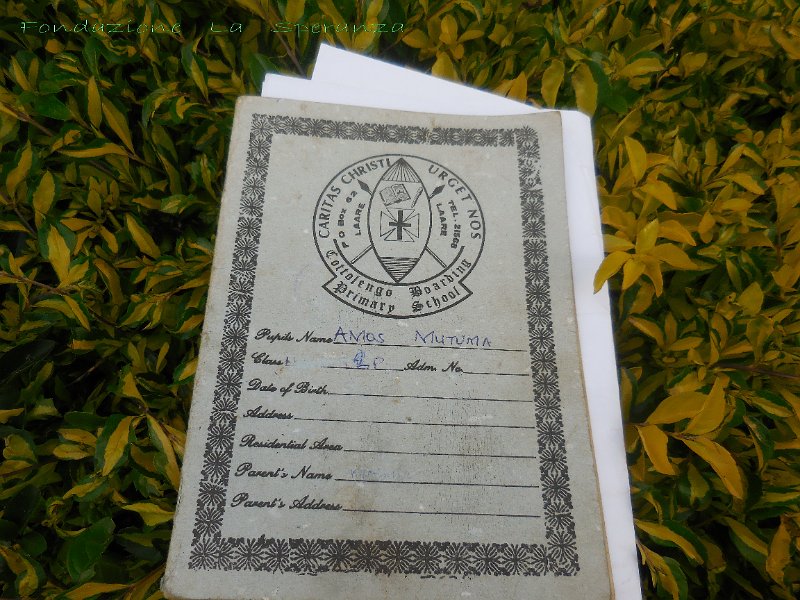 Fondazione La Speranza
CARITAS CHRISTI URGET NOS
P O BOX 62
LAARE
TEL. 21568
LAARE
Cottolengo Boarding
Primary School
Pupils Name AMOS MUTUMA
Class Adm. No.
Date of Birth
Address
Residential Area
Parent's Name
Parent's Address